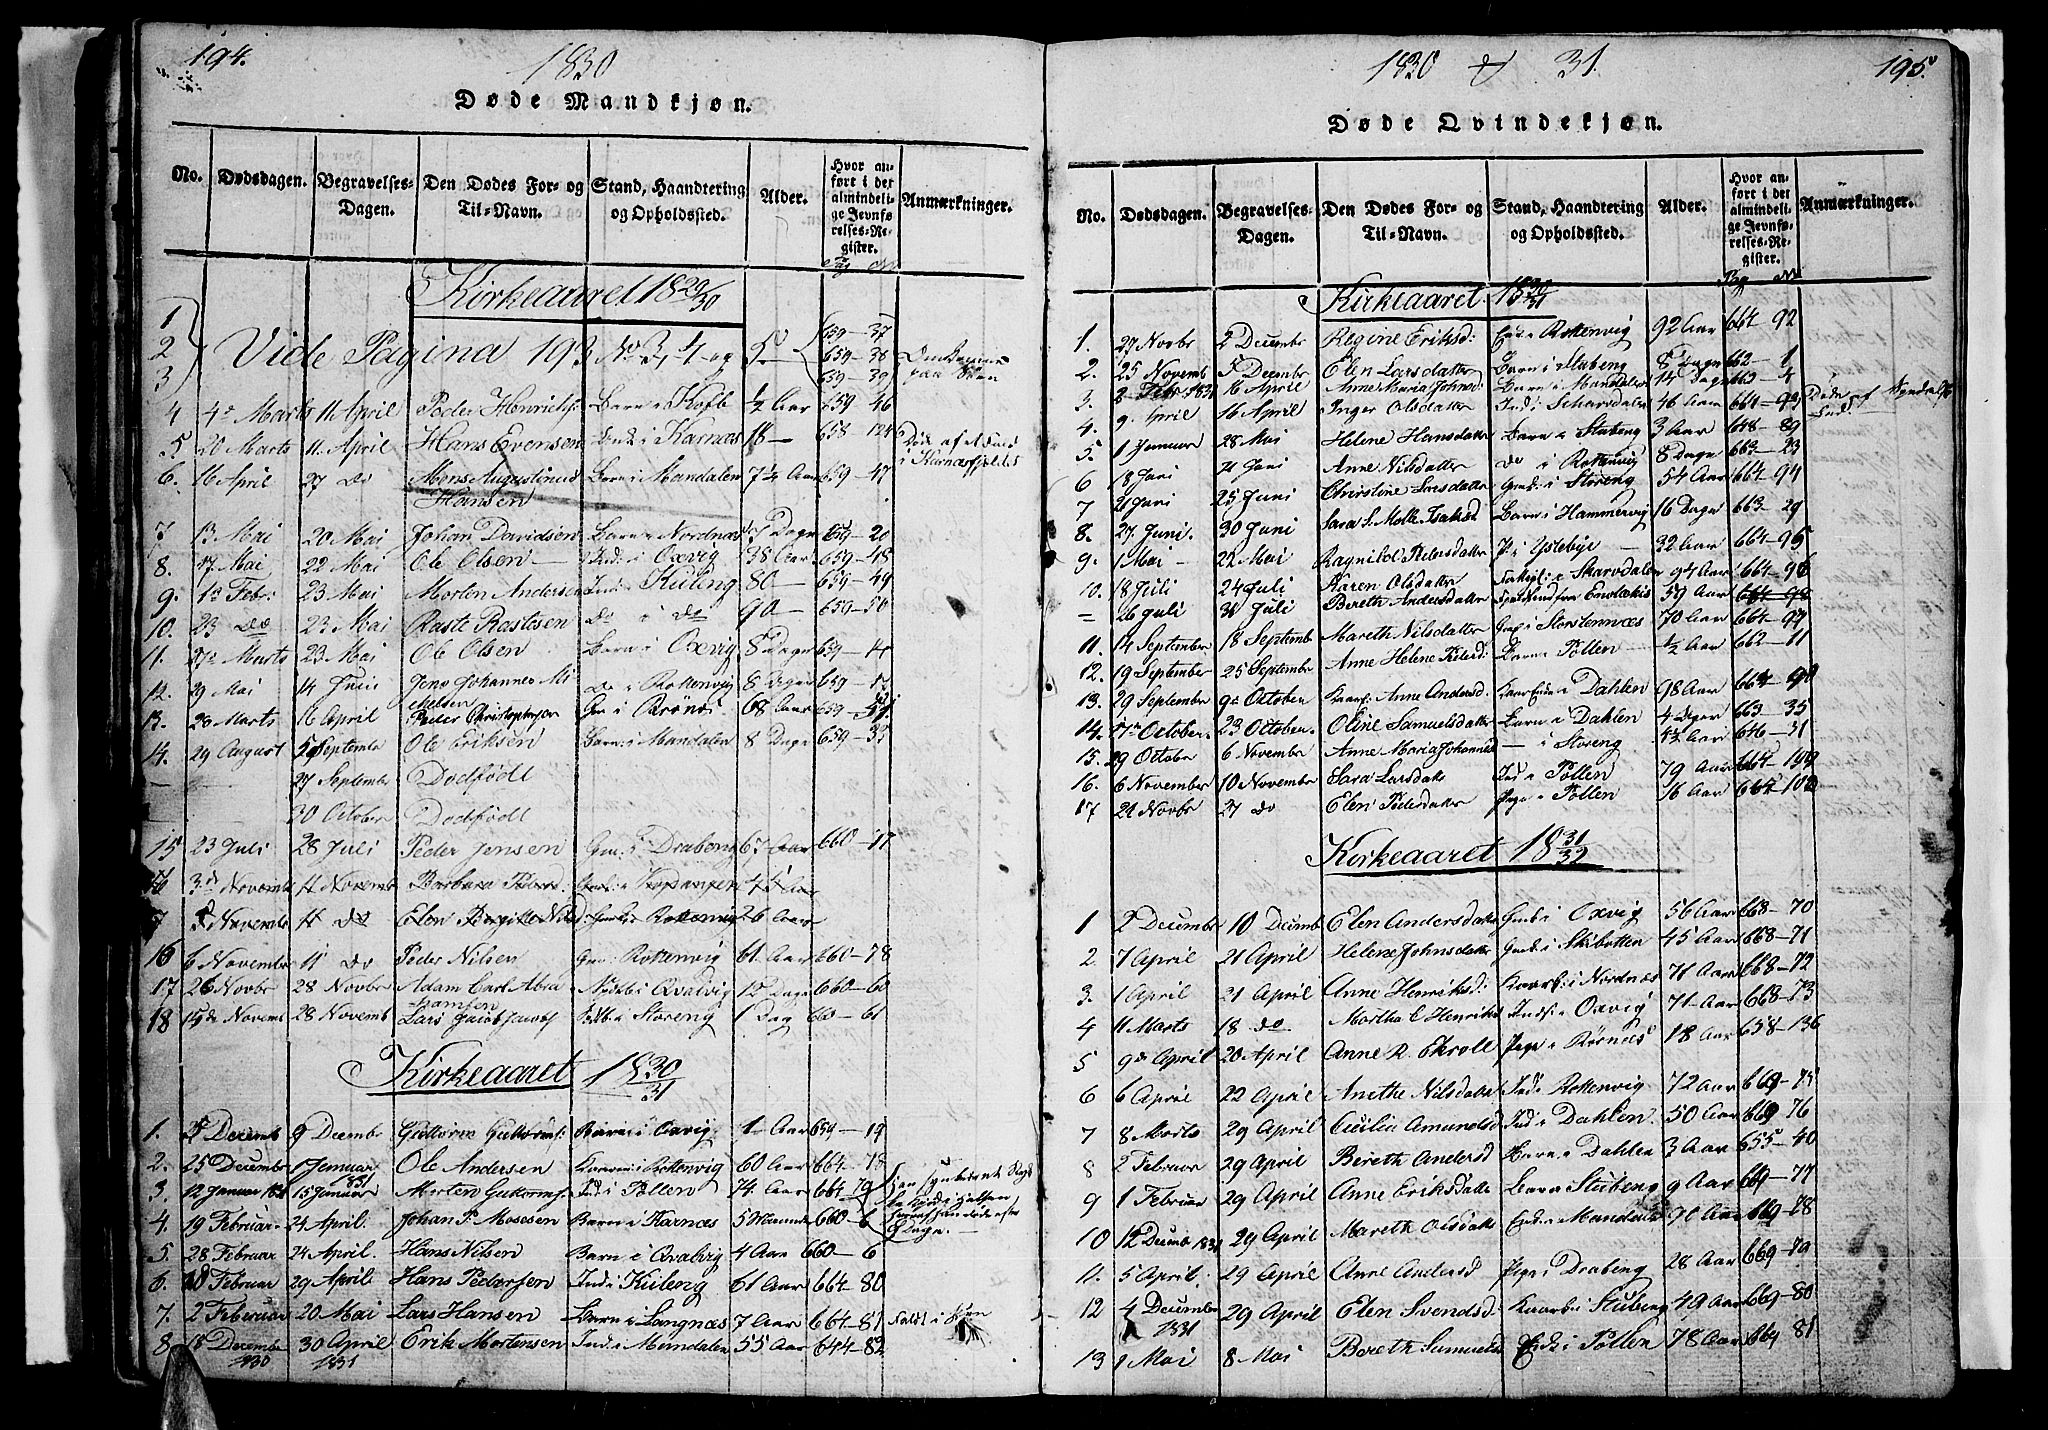 194.
1830
Døde Mandkjøn.
No. Dødsdagen. Begravelses-Dagen. Den Dødes For- og Til-Navn. Stand, Haandtering og Opholdssted. Alder. Hvor anført i det almindelige Jevnførelses-Register. Anmærkninger.
Pag No
Kirkeaaret 1829/30
1
2 Vide Pagina 193 No 3, 4 og 5 659-37
659-38
3 659-39
4 4de Marts 11 April Peder Henrichs: Barn i Kofb ½ Aar 659 46
5 20 Marts 11 April Hans Evensen Ind: i Karnæs 18 - 658 124
6. 16 April 27 do Mons Augustinus Hansen Barn i Mandalen 7½ Aar 659-47
7 13 Mai 20 Mai Johan Davidsen Barn i Nordnæs Dage 659-20
8. 17 Mai 22 Mai Ole Olsen Ind: i Oxvig 38 Aar 659-48
9. 1ste Febr: 23 Mai Morten Andersen Ind i Kuling 80 - 659-49
10. 23 do 23 Mai Raste Rastesen do i do 90 - 659-50
11. Marts 23 Mai Ole Olsen Barn i Oxvig 8 Dage 659-
12. 29 Mai 14 Juni Jens Johannes Mikelsen do i Rottenvig 8 Dage 659-
13. 20 Marts 16 April Peder Christophersen i Rörnes 68 Aar 659-51
14. 29 August 5 Septembr Ole Eriksen Barn i Mandalen 8 Dage 659-33
27 Septembr Dödfödt
30 Octobr Dödfödt
15 23 Juli 28 Juli Peder Jensen Gm: i Drabeng 67 Aar 660-77
3de Novemb 11 Novemb Barbara Peders: i Kopangen 44 Aar
Novembr 11 do Elen Birgitte Nilsd Rottenvig 26 Aar
16 6 November 11 do Peder Nilsen Gm: i Rottenvig 61 Aar 660-78
17 26 Novbr 28 Novbr Adam Carl Abrahamsen i Qvalvig 12 Dage 660-60
18 15de Novemb 28 Novemb Lars Jacob Jacobs i Storeng 1 Dag 660-61
Kirkeaaret 1830/31
1. 5 Decemb 9 Decembr Guttorm Guttorms: Barn i Oxvig 1 Aar 659-19
2. 25 Decembr 1 Januar 1831 Ole Andersen i Rottenvig 60 Aar 664-78
3. 12 Januar 1831 15 Januar Morten Guttorms: Ind i Pollen 74 Aar 664-79
4. 19 Februar 24 April. Johan P. Mosesen Barn i Karnæs 5 Maaned 660-6
5. 28 Februar 24 April. Hans Nilsen Barn i Qvalvig 4 Aar 660-6
6. 18 Februar 29 April Hans Pedersen Ind i Kuleng 61 Aar 664 80
7. 2 Februar 20 Mai Lars Hansen Barn i Langnæs 7 Aar 664-81
8. 18 December 1830 30 April 1831 Erik Mortensen Ind i Mandalen 55 Aar 644-82
1830 & 31.
195.
Døde Qvindekjøn.
No. Dødsdagen. Begravelses-Dagen. Den Dødes For- og Til-Navn. Stand, Haandtering og Opholdssted. Alder. Hvor anført i det almindelige Jevnførelses-Register. Anmærkninger.
Pag No
Kirkeaaret 1830/31
1. 27 Novbr 2 Decembr Regine Eriksd: Enke i Rottenvig 92 Aar 664-92
2. 25 Novemb 5 Decembr Elen Larsdatter Barn i Stubeng 8 Dage 662-1
3. 2 Febr 1831 16 April Anne Maria Johns: Barn i Mandalen 14 Dage 663-4
4. 9 April 16 April Inger Olsdatter Ind: i Skarsdalen 46 Aar 664-93
5. 1 Januar 28 Mai Helene Hansdatter Barn i Stubeng 3 Aar 648-89
6 18 Juni 21 Juni Anne Nilsdatter do i Rottenvig 8 Dage 663-23
7 21 Juni 25 Juni Christine Larsdatter i Storeng 54 Aar 664-94
8. 27 Juni. 30 Juni Sara S. Molle Isaksd Barn i Hammervig 16 Dage 663-29
9. 1 Mai 22 Mai Ragnild Pedersdatter i Ystebye 32 Aar 664-95
10. 18 Juli 24 Juli Karen Olsdatter i Skarvdalen 94 Aar 664-96
26 Juli 31 Juli Bereth Andersdatter 59 Aar 664-98
11. 14 September 18 Septembr Mareth Nilsdatter i Storstennæs 70 Aar 664-97
12. 19 September 25 Septembr Anne Helene Pedersd: Barn i Pollen ½ Aar 662-11
13. 29 September 9de October Anne Andersd: i Dahlen 98 Aar 664-98
14. 17de October. 23 October. Oline Samuelsdatter Barn i Dahlen 4 Dager 663-35
15. 29 Octobr 6 Novembr Anne Maria Johannesd i Storeng 4½ Aar 646-31
16. 6 November 10 November Sara Larsdatter Ind i Pollen 79 Aar 664-199
17 24 Novbr 27 do Elen Pedersdatter Pige i Pollen 16 Aar 664-100
Kirkeaaret 1831/32
1 2 Decembr 10 Decemb Elen Andersdatter Gmb i Oxvig 56 Aar 668-70
2. 7 April 21 April Helene Johnsdatter Gmb: i Skibotten 45 Aar 668-71
3. 1 April 21 April Anne Henriksd: i Nordnæs 71 Aar 668-72
4 11 Marts 18 do Martha E Henriks Inds: i Oxvig 71 Aar 668-73
5 9de April 20 April Anne R. Ekroll Pige i Rörnæs 18 Aar 658-136
6 6 April 22 April Anethe Nilsdatter Ind i Rottenvig 72 Aar 669-75
7 8 Marts 29 April Cicilia Amundsd Ind i Dahlen. 50 Aar 669 76
8 2 Februar 29 April Bereth Andersd Barn i Dahlen 3 Aar 655-40
9 1 Februar 29 April Anne Eriksdatter Barn i Stubeng 9 Aar 669-77
10 12 Decemb 1831 29 April Mareth Olsdatter i Mandalen 90 Aar 669-78
11. 5 April 29 April Anne Andersd Pige i Drabeng 28 Aar 669-79
12 4 December 1831 29 April Elen Svendsd i Stubeng 49 Aar 669-80
13 1 Mai 8 Mai Bereth Samuelsd i Pollen 78 Aar 669 81